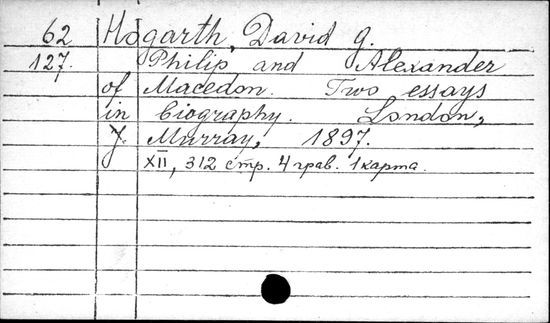 62 Hogarth, David g.
127. Philip and Alexander
of Macedon. Two essays
in biography. London,
J. Murray, 1897.
XII, 312 стр. 4 грав. 1 карта.